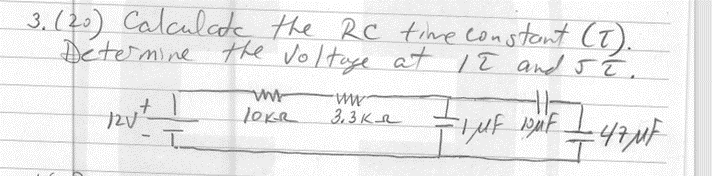 3. (20) Calculate the RC time constant (τ).
Determine the voltage at 1τ and 5τ.
12V + - 10KΩ 3.3KΩ 1μF 10μF 47μF